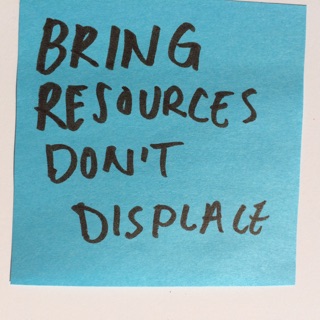 BRING
RESOURCES
DON'T
DISPLACE